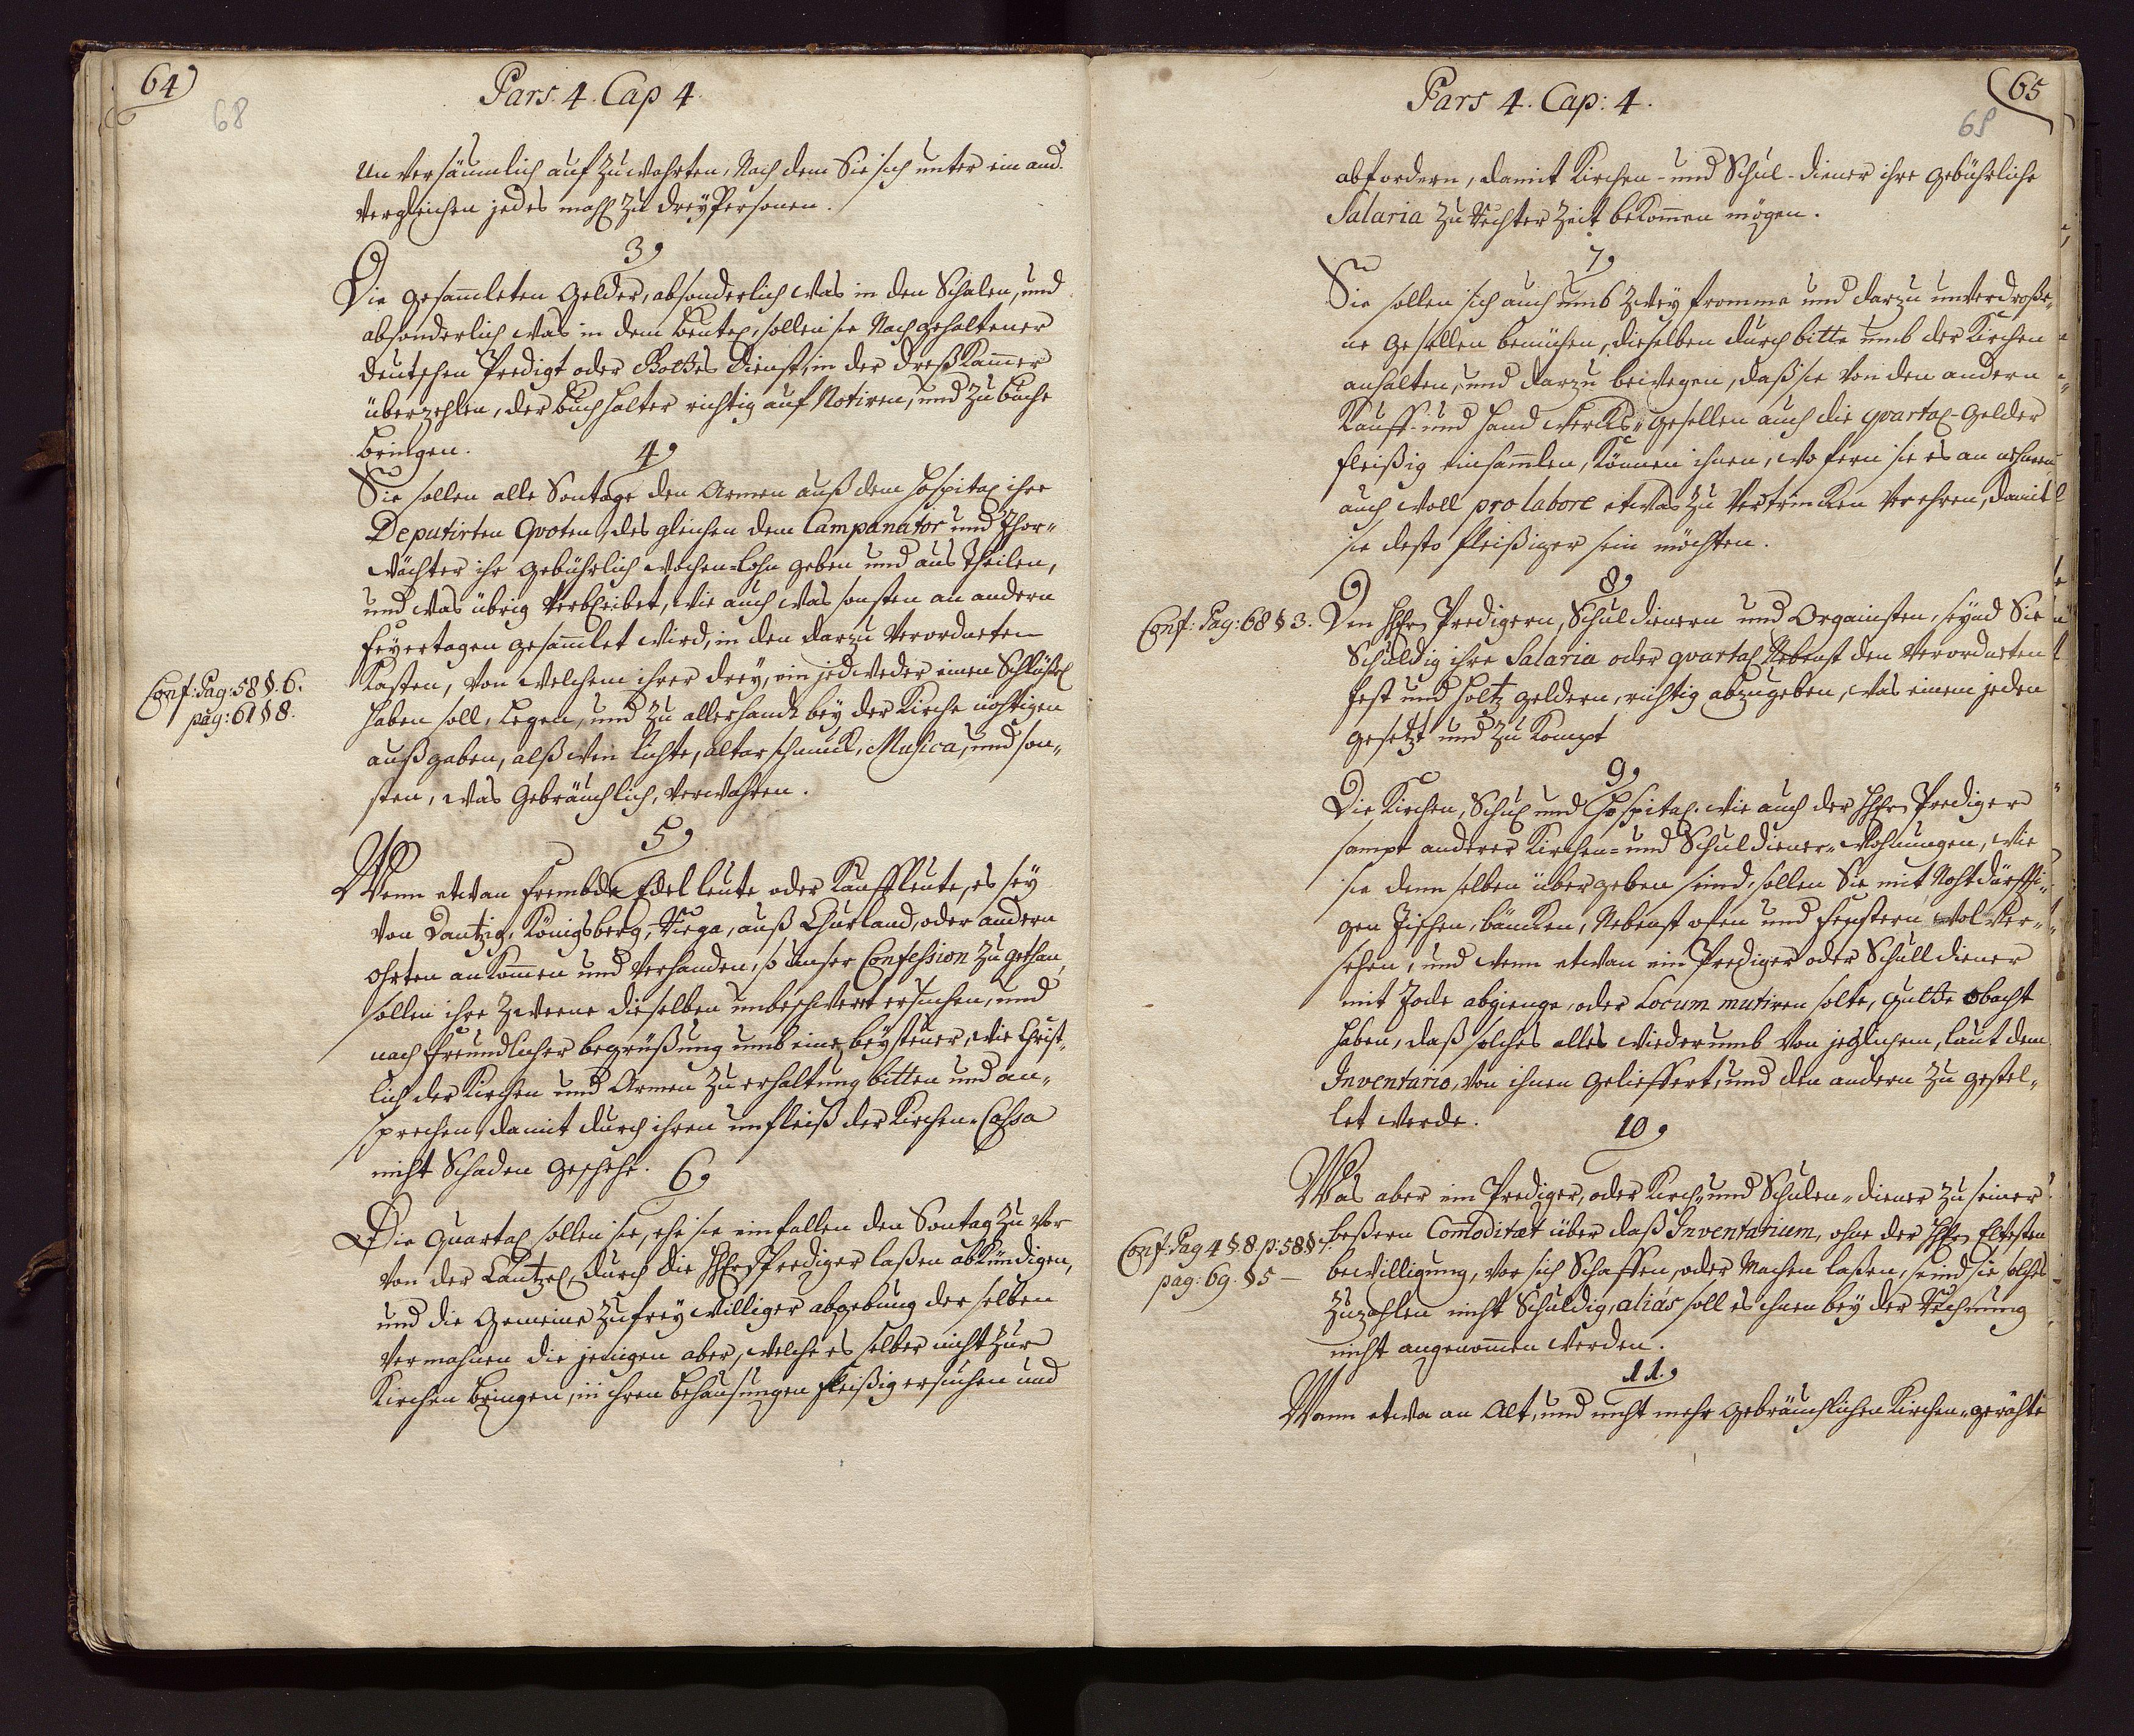 64)
68
Pars. 4. Cap 4.
unversäumlich auf zu wahrten, Nach dem Sie sich unter ein and.
vergleichen jedes mahl zu drey Personen.
3,
Die gesam̄leten Gelder, absonderlich was in den Schalen, und
absonderlich was in dem beutel, sollen sie Nach gehaltener
deutschen Predigt oder Gottes Dienst, in der dreß Kam̄er
überzehlen, der buchhalter richtig auf Notiren, und zu buche
bringen.
4,
Sie sollen alle Sontage den Armen auß dem Hospital ihre
Deputirten Qvoten, des gleichen dem Campanator und Thor„
wächter ihr gebührlich wochen-Lohn geben und aus theilen,
und was übrig verbleibet, wie auch was sonsten an andern
feyertagen gesam̄let wird, in den darzu verordneten
Kasten, von welchem ihrer drey, ein jedweder einen Schlüßel
Conf: Pag: 58 §. 6.
pag: 61 § 8.
haben soll, Legen, und zu allerhandt bey der Kirche nöhtigen
außgaben, alß wein lichte, altar schmuck, Musica, und son„
sten, was Gebräuchlich, verwahren.
5,
Wenn etwan frembde Edelleute oder Kauffleute, es sey
von Dantzig, Königsberg, Riega, auß Churland, oder andern
ohrten an kom̄en und verhanden, so unser Confession zugethan,
sollen ihre zweene dieselben unbeschwert ersuchen, und
nach freundlicher begrüßung umb eine beysteuer, wie Christ„
lich der Kirchen und Armen zu erhaltung bitten und an„
sprechen, damit durch ihren unfleiß der Kirchen-Cassa
nicht Schaden geschehe.
6,
Die Quartal sollen sie, ehe sie einfallen den Sontag zu vor
von der Cantzel, durch die HhEr Prediger laßen abkündigen,
und die Gemeine zu freywilliger abgebung der selben
vermahnen die jenigen aber, welche es selber nicht zur
Kirchen bringen, in ihren behausungen fleißig ersuchen und
Pars 4. Cap: 4.
(65
69
abfordern, damit Kirchen- und Schul-diener ihre gebührliche
Salaria zu rechter Zeit bekom̄en mögen.
7,
Sie sollen sich auch umb zwey fromme und darzu unverdroße„
ne gesellen bemühen, dieselben durch bitte umb der Kirchen
anhalten, und darzu bewegen, daß sie von den andern
Kauff- und Hand wercks„gesellen auch die qvartal-Gelder
fleißig einsam̄len, können ihnen, wo fern sie es an nehmen
auch woll pro labore etwas zu vertrincken verehren, damit
sie desto fleißiger sein möchten.
8,
Conf: Pag: 68 § 3.
Den HhErn Predigern, Schuldienern und Organisten, seynd Sie
Schuldig ihre Salaria oder qvartal Nebenst den verordneten
fest und Holtz geldern, richtig abzugeben, was einem jeden
gesetzt und zu kompt
9,
Die Kirchen, Schul und Hospital, wie auch der HhErn Prediger
sampt anderer Kirchen- und Schuldiener„ wohnungen, wie
sie denn selben übergeben seind, sollen Sie mit Nohtdürffti„
gen Tischen, bäncken, Nebenst ofen und fenstern wol ver„
sehen, und wenn etwan ein Prediger oder Schulldiener
mit Tode abgienge, oder Locum mutiren solte, gutte obacht
haben, daß solches alles wiederumb von jeglichem, laut dem
Inventario, von ihnen gelieffert, und den andern zu gestel„
let werde.
10,
Was aber ein Prediger, oder Kirch„ und Schulen„diener zu seiner
beßern Com̄oditæt über daß Inventarium, ohne der HhErn Eltesten
Conf: Pag 4 § 8. p: 58 § 7.
pag: 69. § 5 —
bewilligung, vor sich Schaffen, oder Machen laßen, seind sie, solches
zuzahlen nicht Schuldig, aliàs soll es ihnen bey der Rechnung
nicht angenom̄en werden.
11.,
Wann etwa an Alt, und nicht mehr gebräuchlichen Kirchen„gerähte